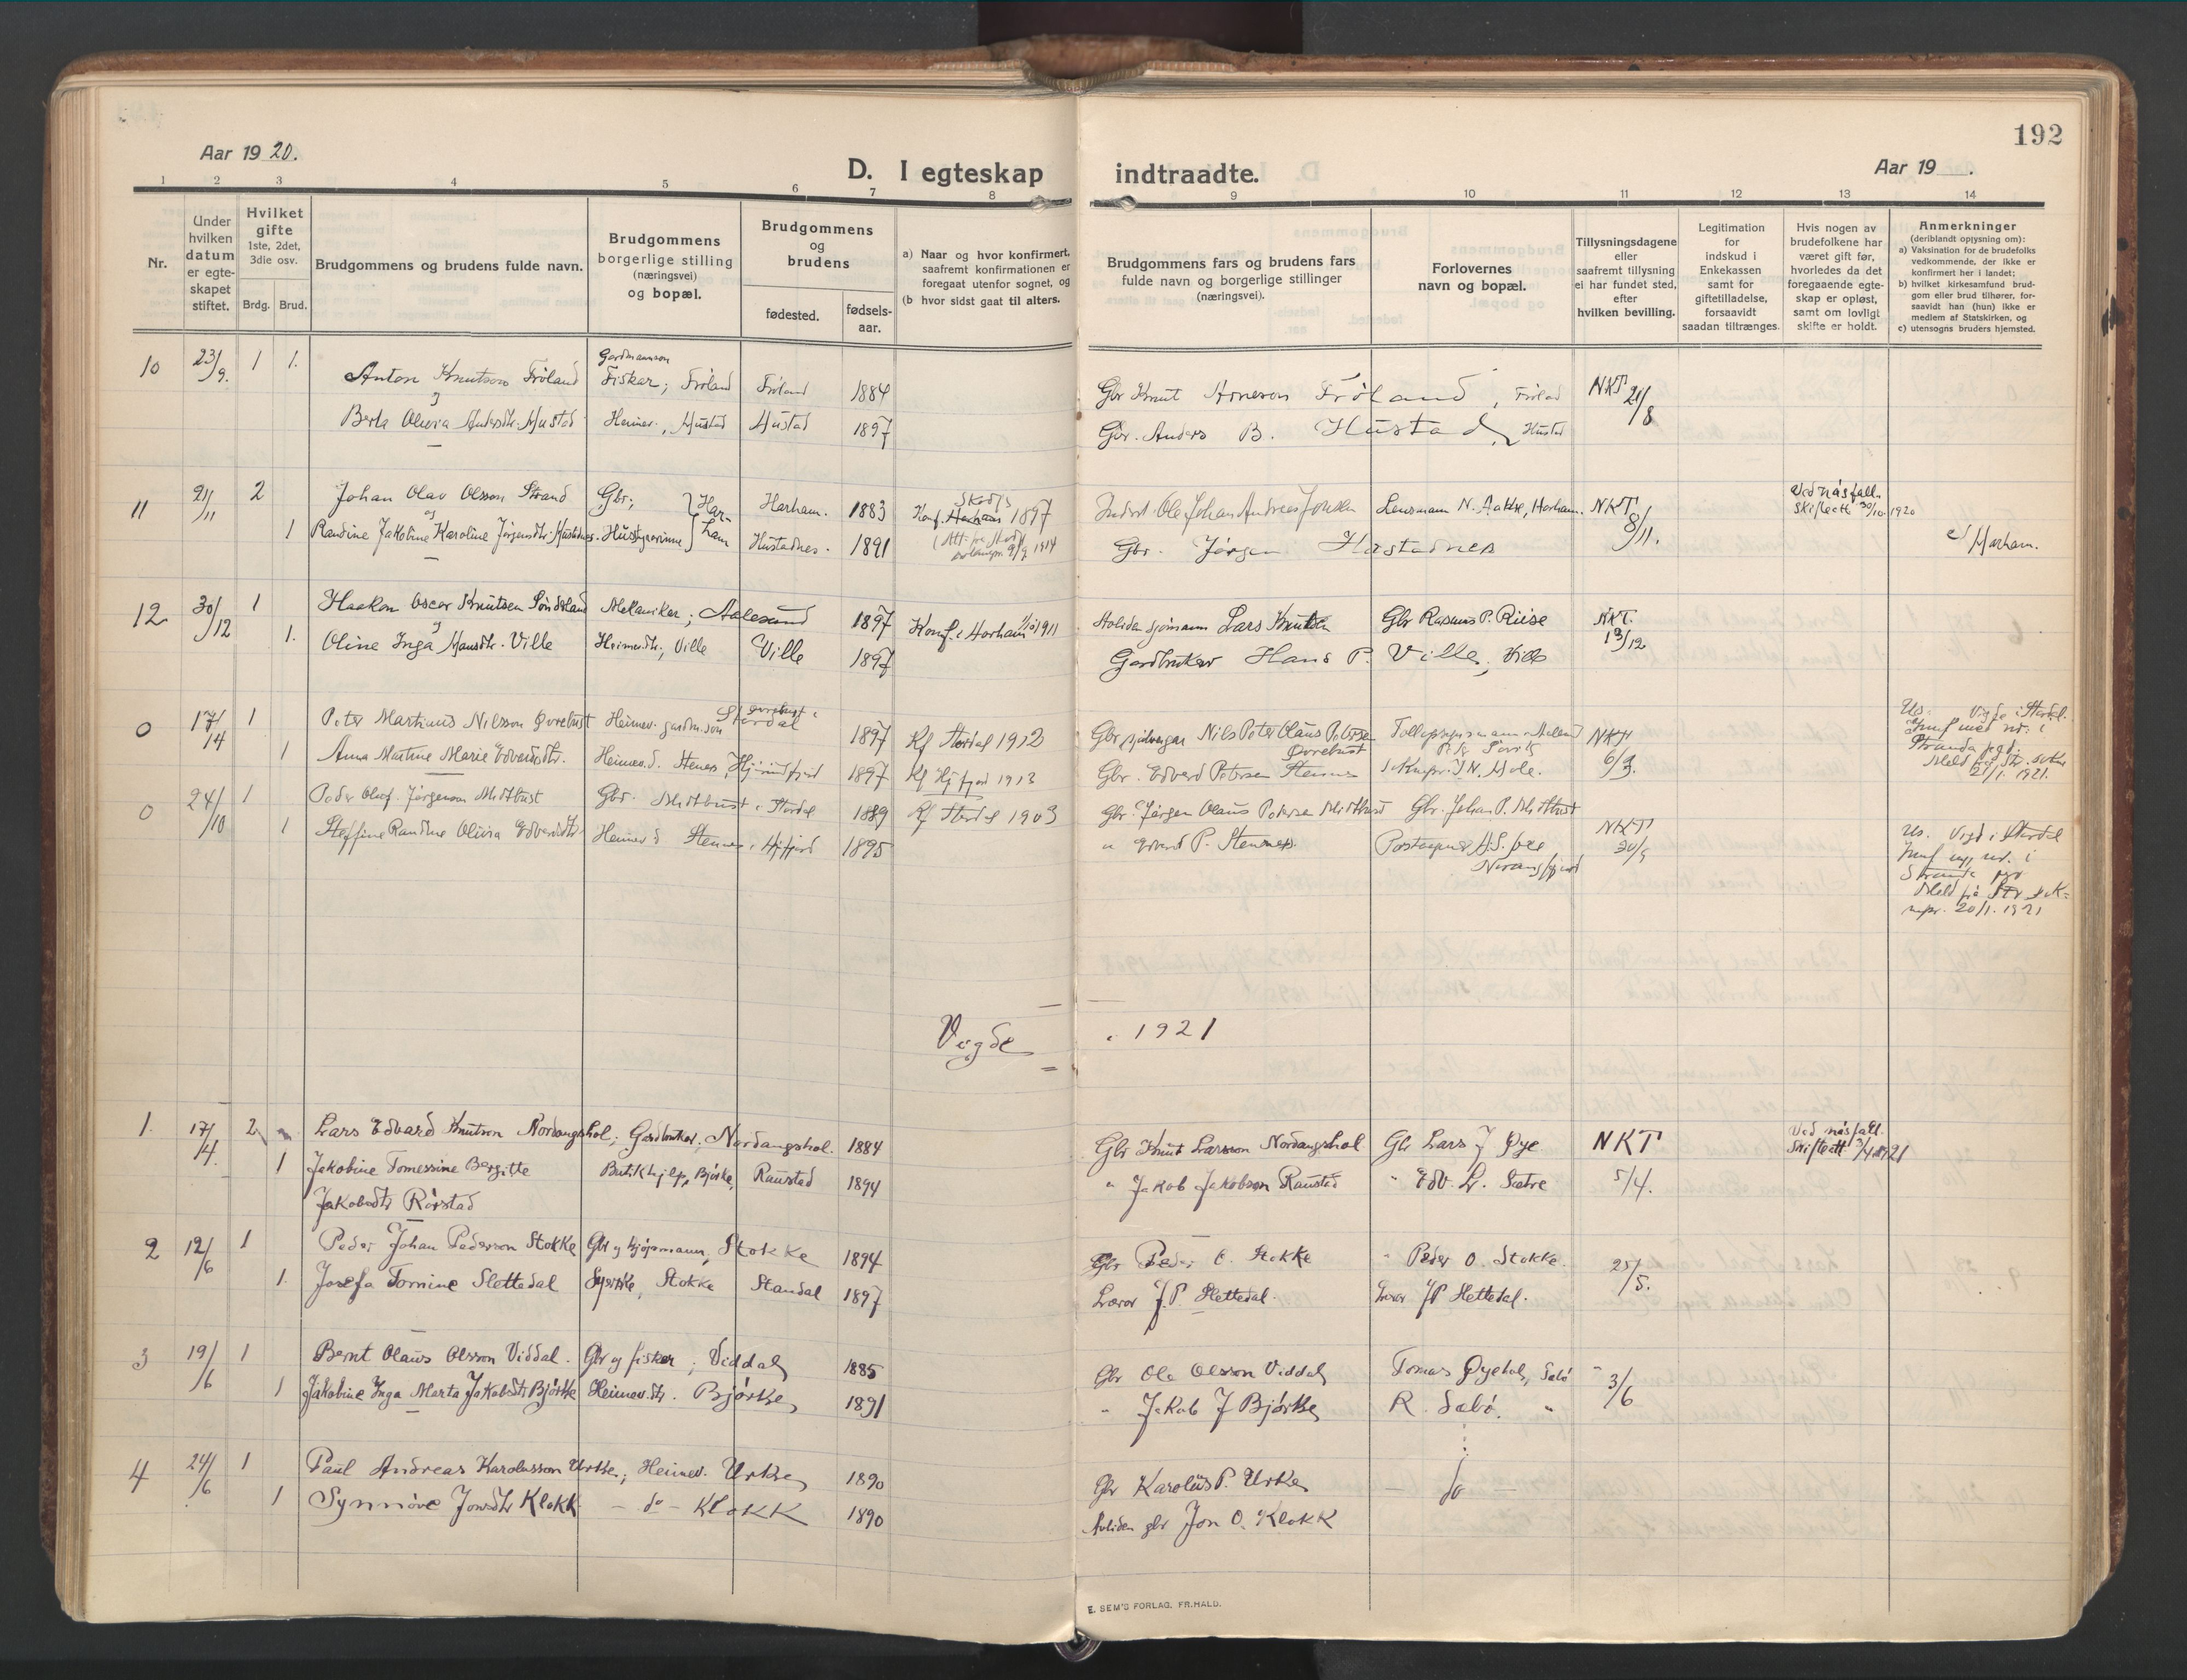 192
Aar 19 20.
D. I egteskap indtraadte.
Aar 19 .
1 2 3 4 5 6 7 8 9 10 11 12 13 14
Nr.
Under hvilken datum er egteskapet stiftet.
Hvilket gifte 1ste, 2det, 3die osv.
Brdg. Brud.
Brudgommens og brudens fulde navn.
Brudgommens borgerlige stilling (næringsvei) og bopæl.
Brudgommens og brudens
fødested. fødselsaar.
a) Naar og hvor konfirmert, saafremt konfirmationen er foregaat utenfor sognet, og
(b hvor sidst gaat til alters.
Brudgommens fars og brudens fars fulde navn og borgerlige stillinger (næringsvei).
Forlovernes navn og bopæl.
Tillysningsdagene eller saafremt tillysning ei har fundet sted, efter hvilken bevilling.
Legitimation for indskud i Enkekassen samt for giftetilladelse, forsaavidt saadan tiltrænges.
Hvis nogen av brudefolkene har været gift før, hvorledes da det foregaaende egteskap er opløst, samt om lovligt skifte er holdt.
Anmerkninger (deriblandt opysning om):
a) Vaksination for de brudefolks vedkommende, der ikke er konfirmert her i landet;
b) hvilket kirkesamfund brudgom eller brud tilhører, forsaavidt han (hun) ikke er medlem af Statskirken, og
c) utensogns bruders hjemsted.
10 23/9. 1 1. Anton Knutson Frøland Gardmannson Fiskar; Frøland Frøland 1884 Gbr Knut Arneson Frøland, Frøland NKT 21/8
og
Berta Olivia Andersdtr. Hustad Heimev., Hustad Hustad 1897 Gbr. Anders B. Hustad, Hustad
11 21/11 2 Johan Olav Olsson Strand Gbr; Harham Harham. 1883 Konf. Skodje 1897 Ole Johan Andreas Lensmann N. Aakre, Harham. NKT 8/11. Ved násfall. Skifteatt 30/10 1920
og
1 Randine Jakobine Karoline Jørgensdtr. Hustadnes. Husstyrerinne Hustadnes. 1891 Gbr. Jørgen Hustadnes c/ Harham.
12 30/12 1 Haakon Oscar Knutsen Sønderland Mekaniker; Aalesund 1897 Konf. i Harham 1911 Avliden sjømann Lars Knutsen Gbr Rasmus P. Riise NKT. 13/12
og
1. Oline Inga Hansdtr. Ville Heimevdtr., Ville Ville 1897 Gardbruker Hans P. Ville, Ville
0 17/14 1 Peter Martinus Nilsson Øvrebust Heimev. gardm.son Øvrebust i Stordal 1897 Kf Stordal 1912 Gbr Nils Peter Olaus Petersen Øvrebust NKT 6/3.
1 Anna Martine Marie Edvardsdtr. Heimev.d. Stenes, Hjørundfjord 1897 Kf Hjfjord 1913 Gbr. Edvard Petersen Stennes
Us. Vigde i Stordal.
21/1. 1921.
0 24/10 1 Peder Oluf Jørgenson Midtbust Gbr. Midtbust i Stordal 1889 Kf Stordal 1903 Gbr. Jørgen Olaus Petersen Midtbust Gbr. Johan P. Midtbust NKT 20/9
1 Steffine Randine Olivia Edvardsdtr. Heimev d Stennes i Hjfjord 1895 " Edvard P. Stennes. Postaapner Norangsfjord
Us. Vigd i Stordal
20/1. 1921
Vigde i 1921
1. 17/4. 2 Lars Edvard Knutson Nordangshol; Gardbruker. Nordangshol. 1884 Gbr Knut Larsson Nordangshol Gbr Lars J Øye NKT 5/4. Ved násfall. Skifteatt 3/4 1921
1 Jakobine Tomessine Bergitte Butikhjelp, Bjørke, Raustad 1894 " Jakob Jakobson Raustad " Edv. L. Sætre
Jakobsdtr Rørstad
2 12/6 1 Peder Johan Pederson Stokke Gbr og kjøpmann, Stokke 1894 Gbr Peder O. Stokke " Peder O. Stokke. 25/5.
1. Josefa Tomine Slettedal Syerske, Stokke Standal 1897 Lærar J.P. Slettedal. Lærar JP Slettedal.
3 19/6 1 Bernt Olaus Olsson Viddal. Gbr og fisker; Viddal 1885 Gbr Ole Olsson Viddal Tomas Øyehol, Sæbø " 3/6
1 Jakobine Inga Marta Jakobsdtr Bjørke Heimev.dtr. Bjørke 1891 " Jakob J Bjørke R. Sæbø. "
4 24/6 1 Paul Andreas Karolusson Urke; Heimev. Urke 1890 Gbr Karolus P. Urke — do —
1 Synnøve Jonsdtr Klokk — do — Klokk 1890 Avliden gbr Jon O. Klokk
E. SEM'S FORLAG, FR.HALD.